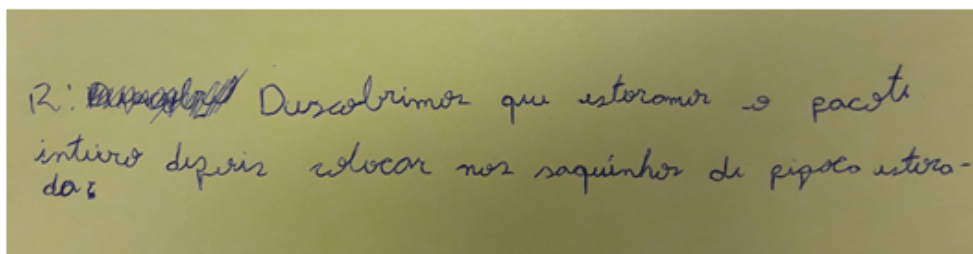 R: Descobrimos que estoramos o pacote
inteiro depois colocar nos saquinhos de pipoca estora-
da;